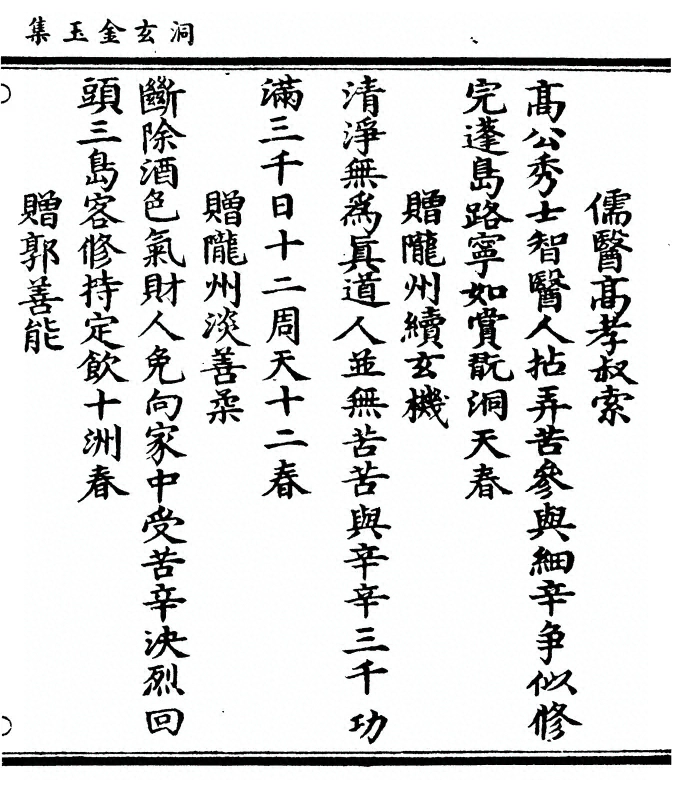 洞玄金玉集
儒醫高孝叔索
高公秀士智醫人拈弄苦參與細辛爭似修
完蓬島路寧如賞翫洞天春
贈隴州續玄機
清淨無為真道人並無苦苦與辛辛三千功
滿三千日十二周天十二春
贈隴州淡善柔
斷除酒色氣財人免向家中受苦辛決烈回
頭三島客修持定飲十洲春
贈郭善能